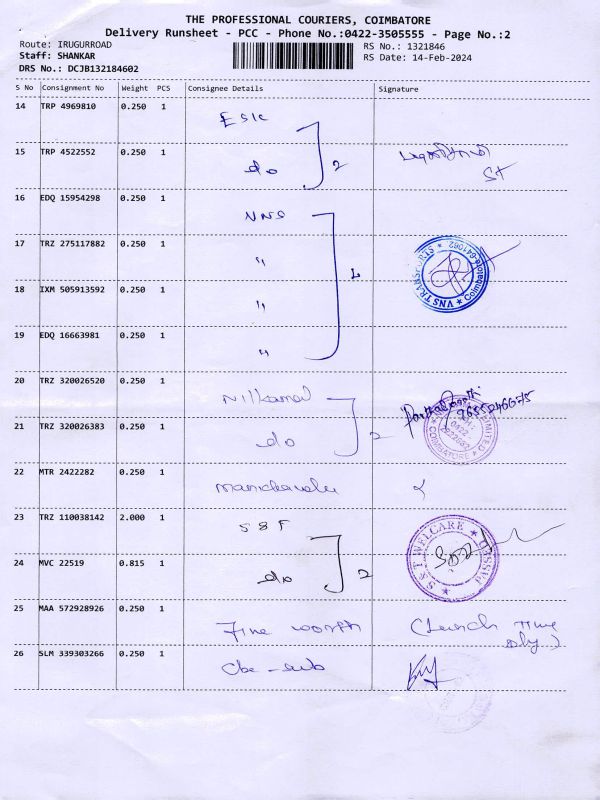 THE PROFESSIONAL COURIERS, COIMBATORE
Delivery Runsheet - PCC - Phone No.:0422-3505555 - Page No.:2
Route: IRUGURROAD
RS No.: 1321846
Staff: SHANKAR
RS Date: 14-Feb-2024
DRS No.: DCJB132184602
S No Consignment No Weight PCS Consignee Details Signature
14 TRP 4969810 0.250 1 ESIC
15 TRP 4522552 0.250 1 do 2
16 EDQ 15954298 0.250 1 VNS
17 TRZ 275117882 0.250 1 "
VNS TRANSPORTS * Coimbatore-641062 *
18 IXM 505913592 0.250 1 " 4
19 EDQ 16663981 0.250 1 "
20 TRZ 320026520 0.250 1 Nilkamal
21 TRZ 320026383 0.250 1 do 2
LIMITED COIMBATORE
22 MTR 2422282 0.250 1
23 TRZ 110038142 2.000 1
24 MVC 22519 0.815 1 do 2
WELCARE
25 MAA 572928926 0.250 1 Fine worth (Lunch Time only)
26 SLM 339303266 0.250 1 Cbe-sub